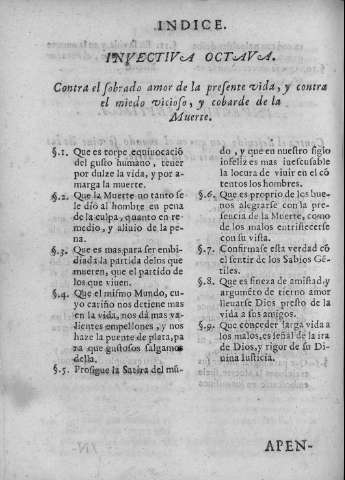 INDICE.
INVECTIVA OCTAVA.
Contra el sobrado amor de la presente vida, y contra
el miedo vicioso, y cobarde de la
Muerte.
§.1. Que es torpe equiuocaciõ
del gusto humano, tener
por dulze la vida, y por a-
marga la muerte.
§.2. Que la Muerte no tanto se
le diò al hombre en pena
de la culpa, quanto en re-
medio, y aliuio de la pe-
na.
§.3. Que es mas para ser embi-
diada la partida de los que
mueren, que el partido de
los que viuen.
§.4. Que el mismo Mundo, cu-
yo cariño nos detiene mas
en la vida, nos dà mas va-
lientes empellones, y nos
haze la puente de plata, pa
ra que gustosos salgamos
della.
§.5. Prosigue la Satira del mũ-
do, y que en nuestro siglo
infeliz es mas inescusable
la locura de viuir en el cõ
tentos los hombres.
§.6. Que es proprio de los bue-
nos alegrarse con la pre-
sencia de la Muerte, como
de los malos entristecerse
con su vista.
§.7. Confirmase esta verdad cõ
el sentir de los Sabios Gẽ-
tiles.
§.8. Que es fineza de amistad, y
argumẽto de tierno amor
lleuarse Dios presto de la
vida a sus amigos.
§.9. Que conceder larga vida a
los malos, es señal de la ira
de Dios, y rigor de su Di-
uina Iusticia.
APEN-